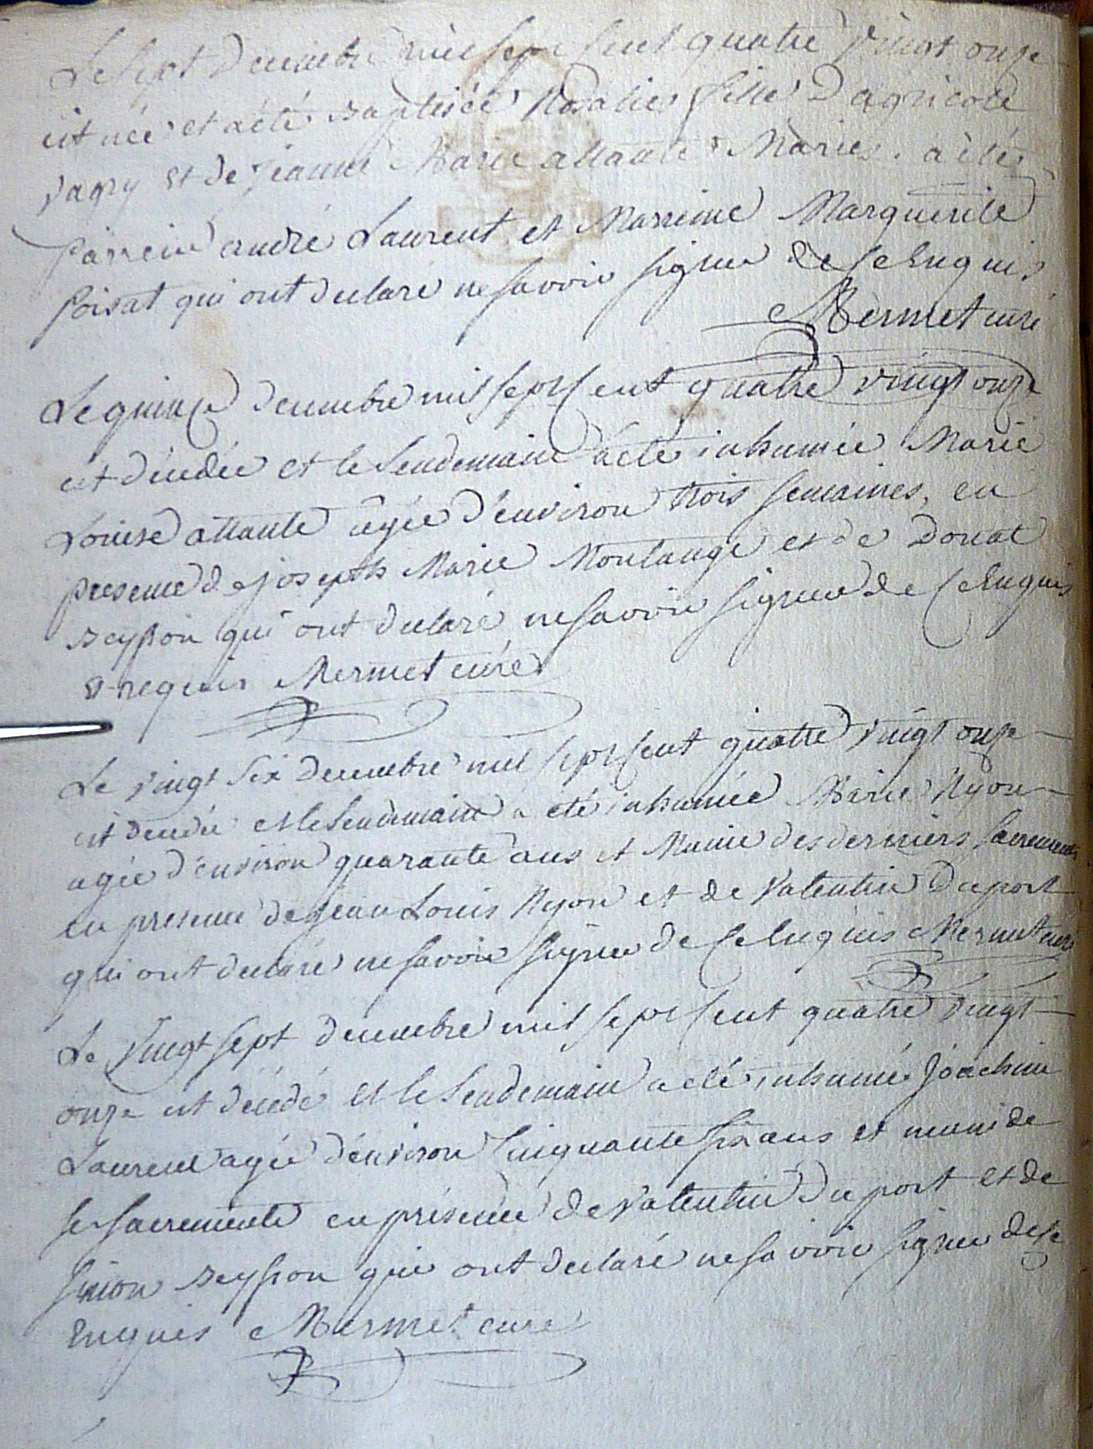 Le sept decembre mil sept cent quatre vingt onze
est née et a été baptisée Rosalie fille d'agricole
vagry et de jeanne Marie allante Mariés. a été
parrein andré Laurent et Marreine Marguerite
foisat qui ont declaré ne savoir signer de ce Enquis
Mermet curé
Le quinze decembre mil sept cent quatre vingt onze
est décédée et le Lendemain a été inhumée Marie
Louise allante agée d'environ trois semaines, en
presence de joseph Marie Moulange et de Donat
Beysson qui ont declaré ne savoir signer de ce Enquis
et requis Mermet curé
Le vingt six decembre mil sept cent quatre vingt onze
est decedée et le Lendemain a été inhumée Marie Nyon
agée d'environ quarante ans et Munie des derniers sacrements
en presence de jean Louis Nyon et de Valentin Duport
qui ont declaré ne savoir signer de ce Enquis Mermet curé
Le vingt sept decembre mil sept cent quatre vingt
onze est décédé et le Lendemain a été inhumé Joachim
Laurent agé d'environ cinquante six ans et muni de
se sacrements en présence de Valentin Duport et de
simon Beysson qui ont declaré ne savoir signer de ce
Enquis Mermet curé